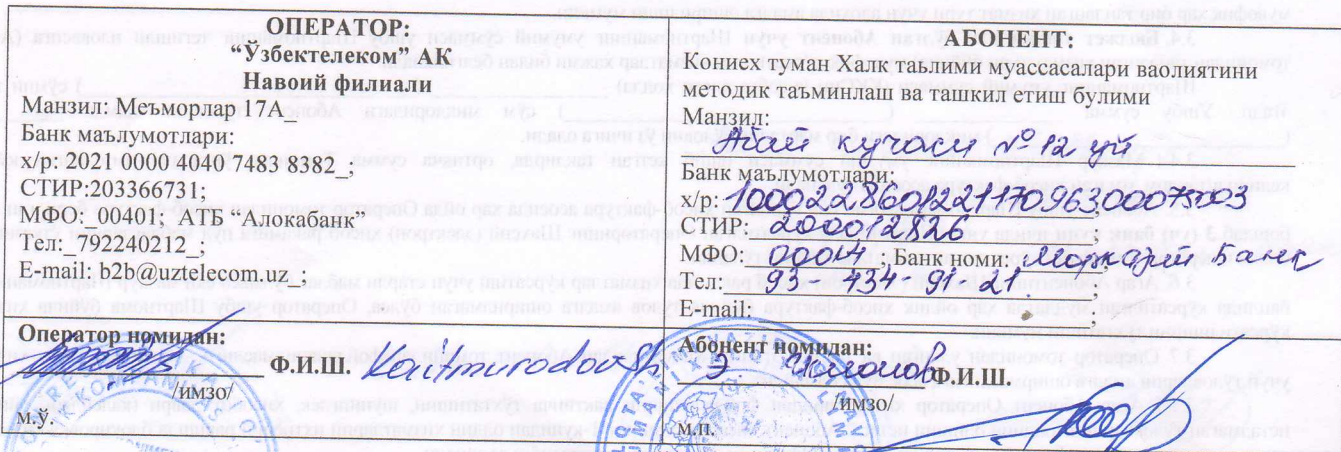 ОПЕРАТОР:
“Ўзбектелеком” АК
Навоий филиали
Манзил: Меъморлар 17А_
Банк маълумотлари:
х/р: 2021 0000 4040 7483 8382_;
СТИР:203366731;
МФО:_00401; АТБ “Алокабанк”
Тел:_792240212_;
E-mail: b2b@uztelecom.uz_;
Оператор номидан:
Ф.И.Ш.
/имзо/
М.Ў.
АБОНЕНТ:
Кониех туман Халк таълими муассасалари ваолиятини
методик таъминлаш ва ташкил етиш булими
Манзил:
Абай кучаси № 12 уй
Банк маълумотлари:
х/р:
СТИР: 200012826 ;
МФО: 00014 ; Банк номи: Марказий Банк
Тел.: 93-434-91-21 ;
E-mail: ;
Абонент номидан:
Э. Ф.И.Ш.
/имзо/
М.П.